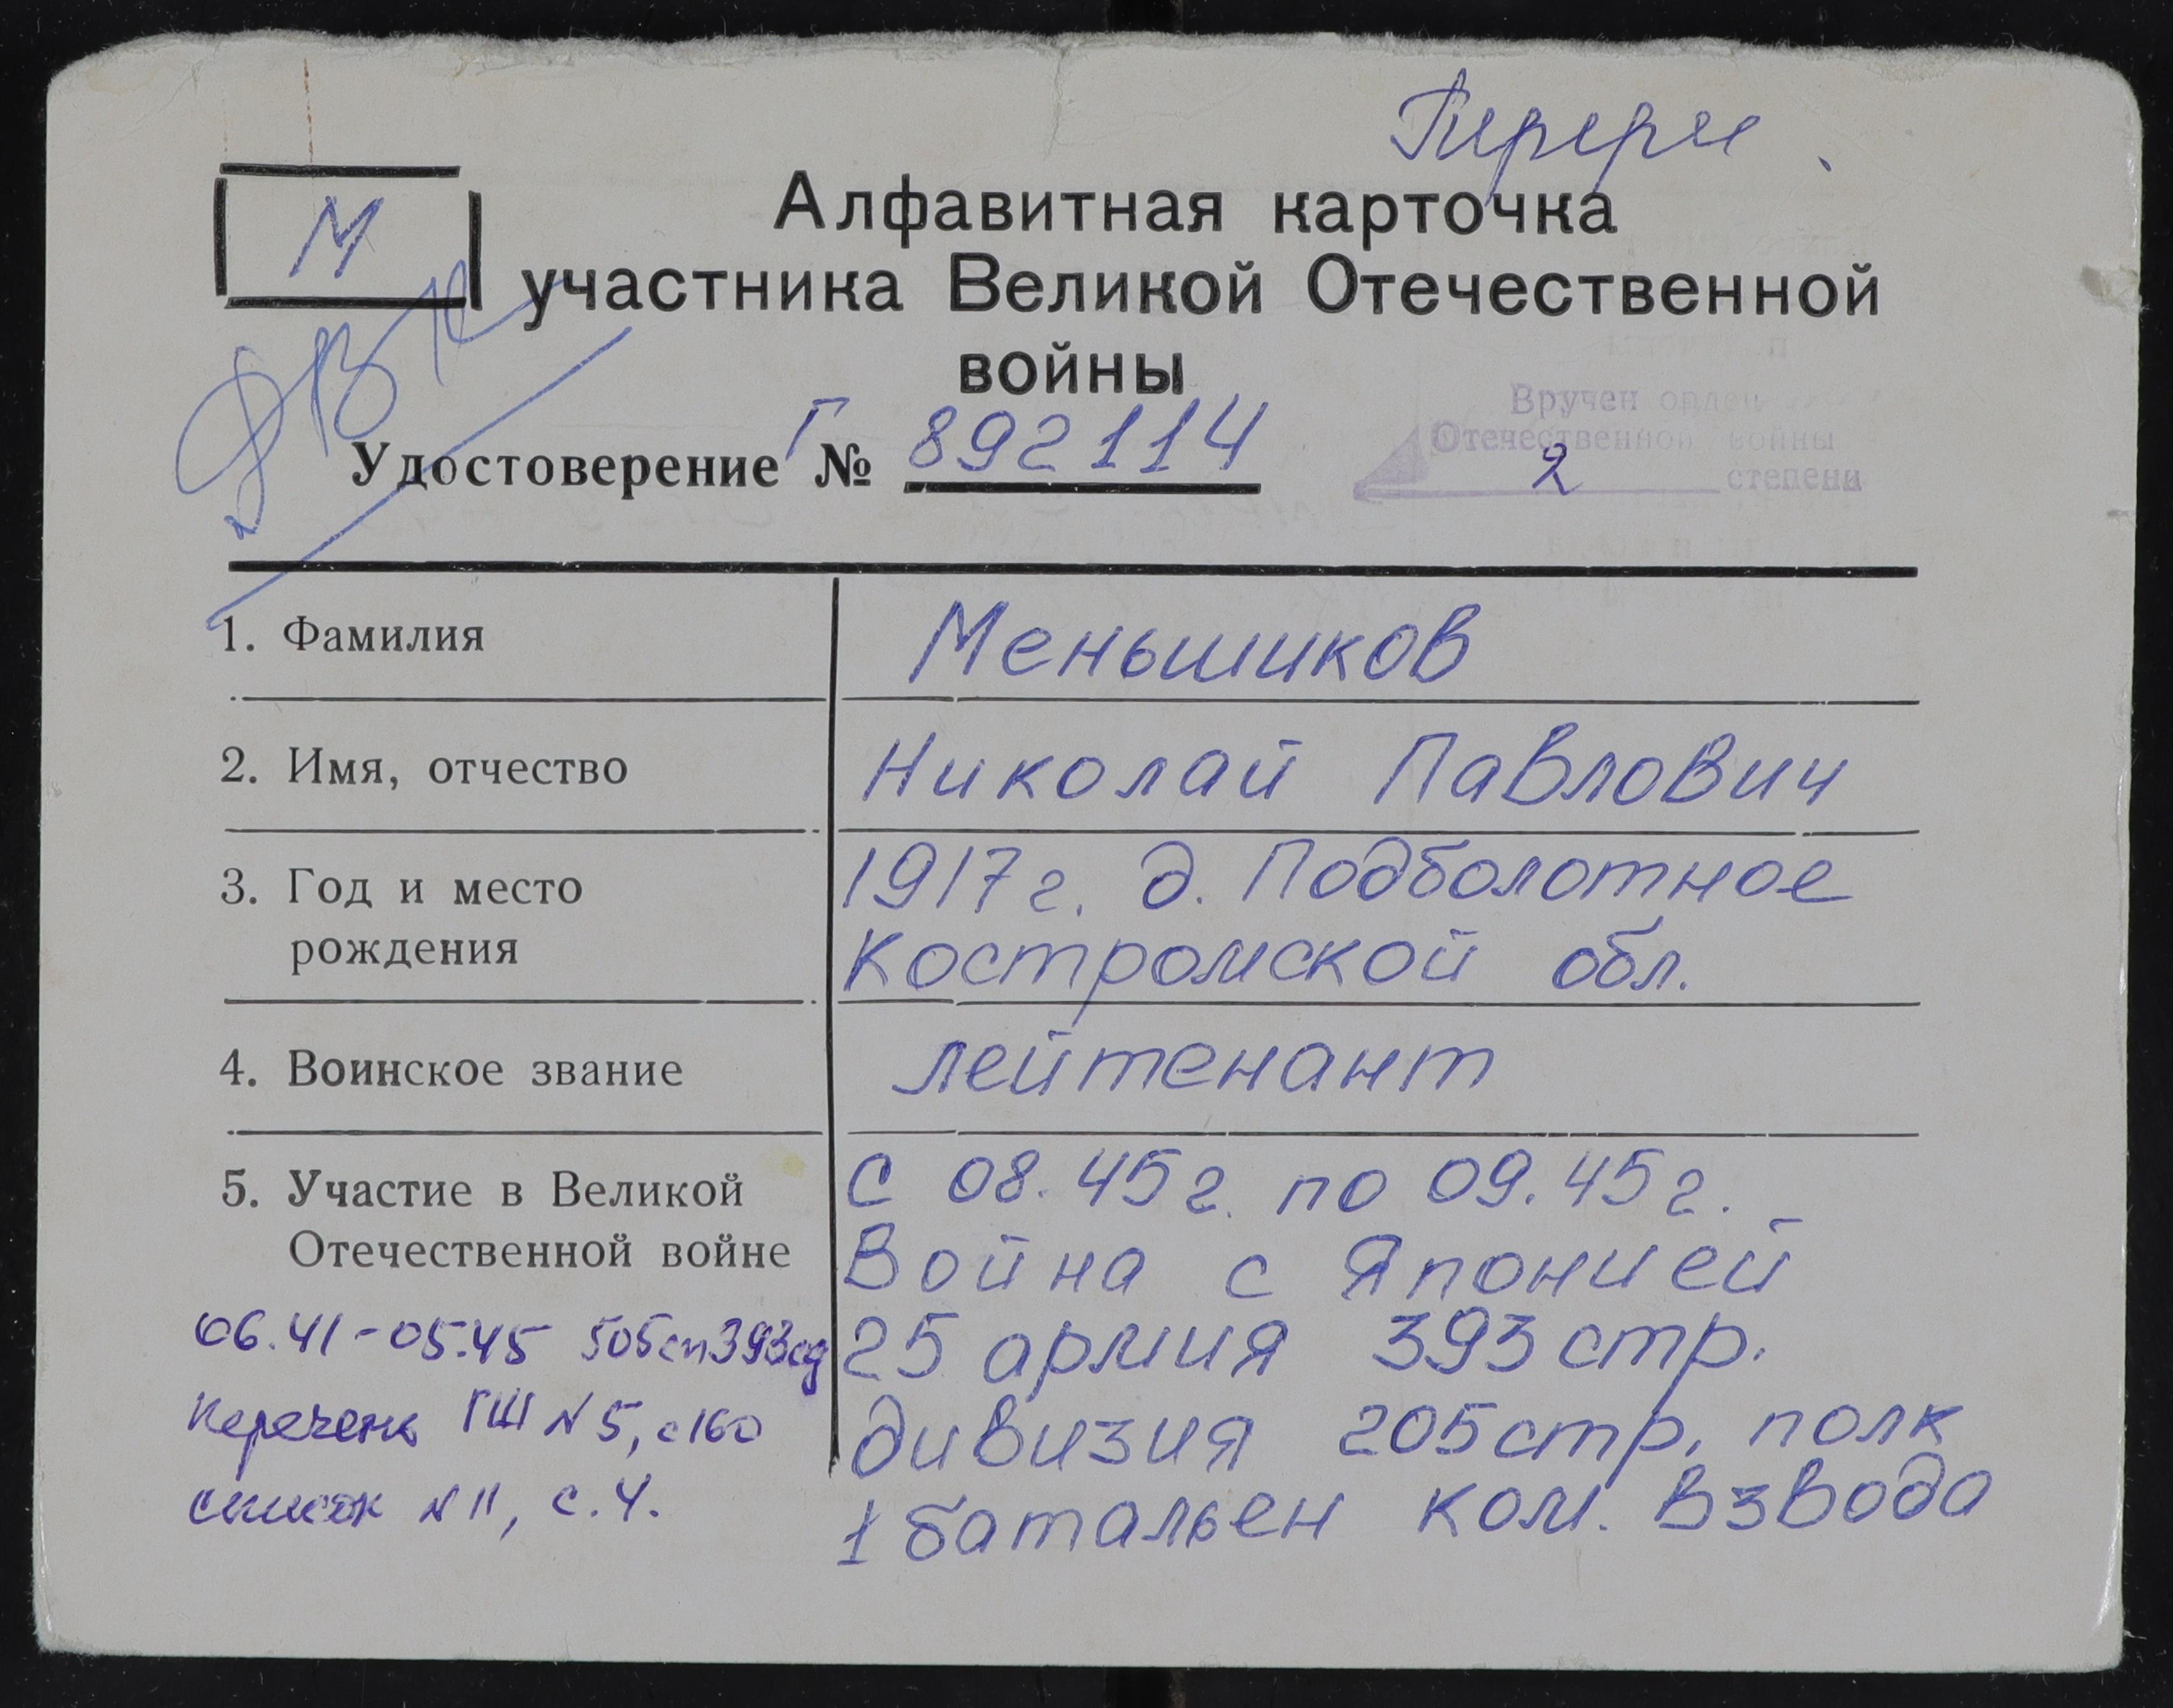 М
Алфавитная карточка
участника Великой Отечественной
войны
Удостоверение Г № 892114
Вручен орден
Отечественной войны
2 степени
1. Фамилия
Меньшиков
2. Имя, отчество
Николай Павлович
3. Год и место
рождения
1917г. д. Подболотное
Костромской обл.
4. Воинское звание
лейтенант
5. Участие в Великой
Отечественной войне
с 08.45г. по 09.45г.
Война с Японией
25 армия 393 стр.
дивизия 205 стр. полк
1 батальен ком. взвода
06.41-05.45 505сп 393сд
Перечень ГШ N 5, с 160
список N 11, с. 4.